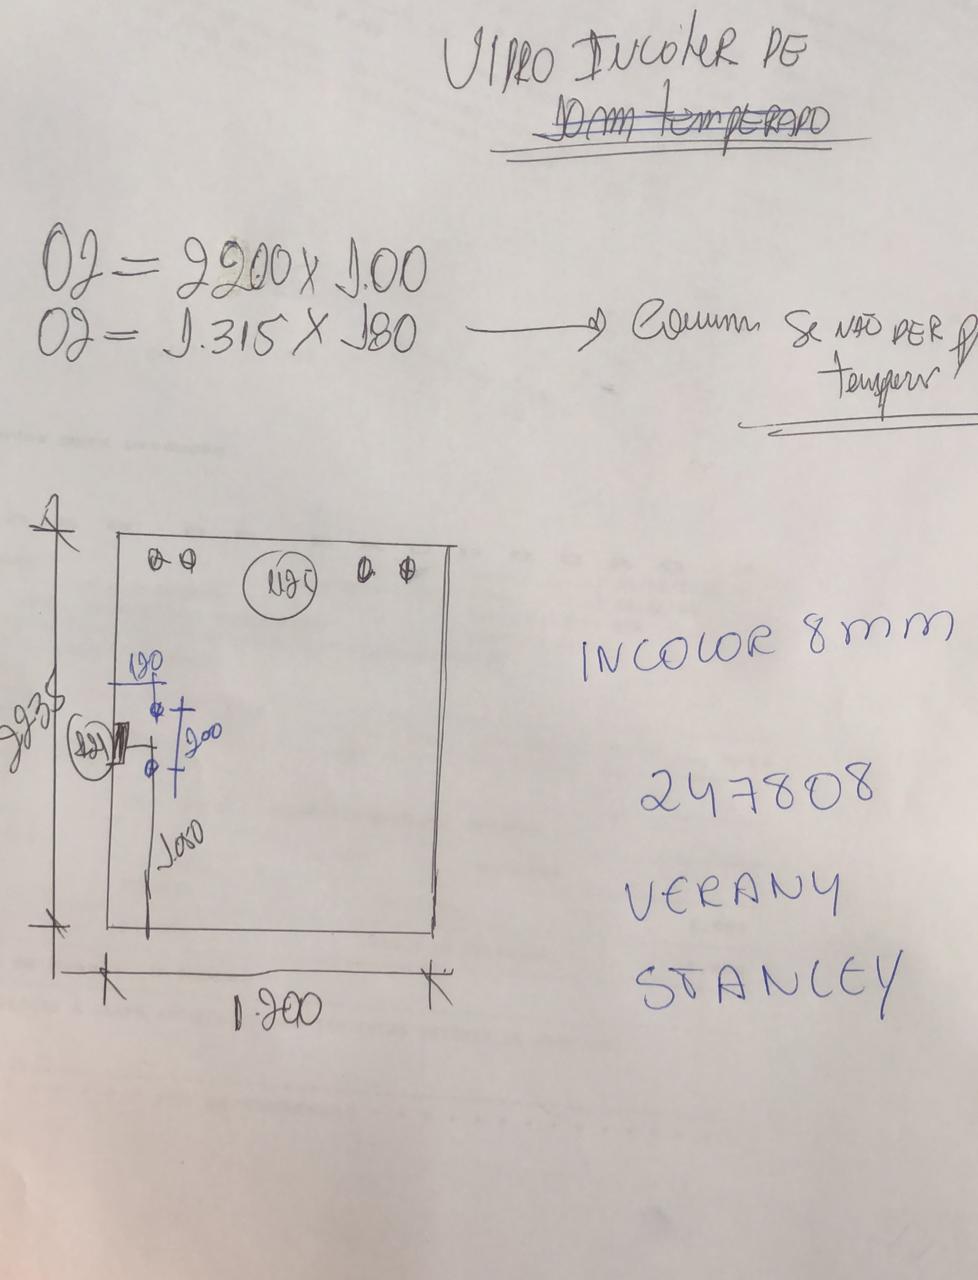 VIDRO INCOLOR DE
10mm temPERADO
02 = 2200 X 1.00
02 = 1.315 X 180 → Comum Se NÃO DER P/
temperar
1125
120
200
2235
1.050
1.200
INCOLOR 8mm
247808
VERANY
STANLEY